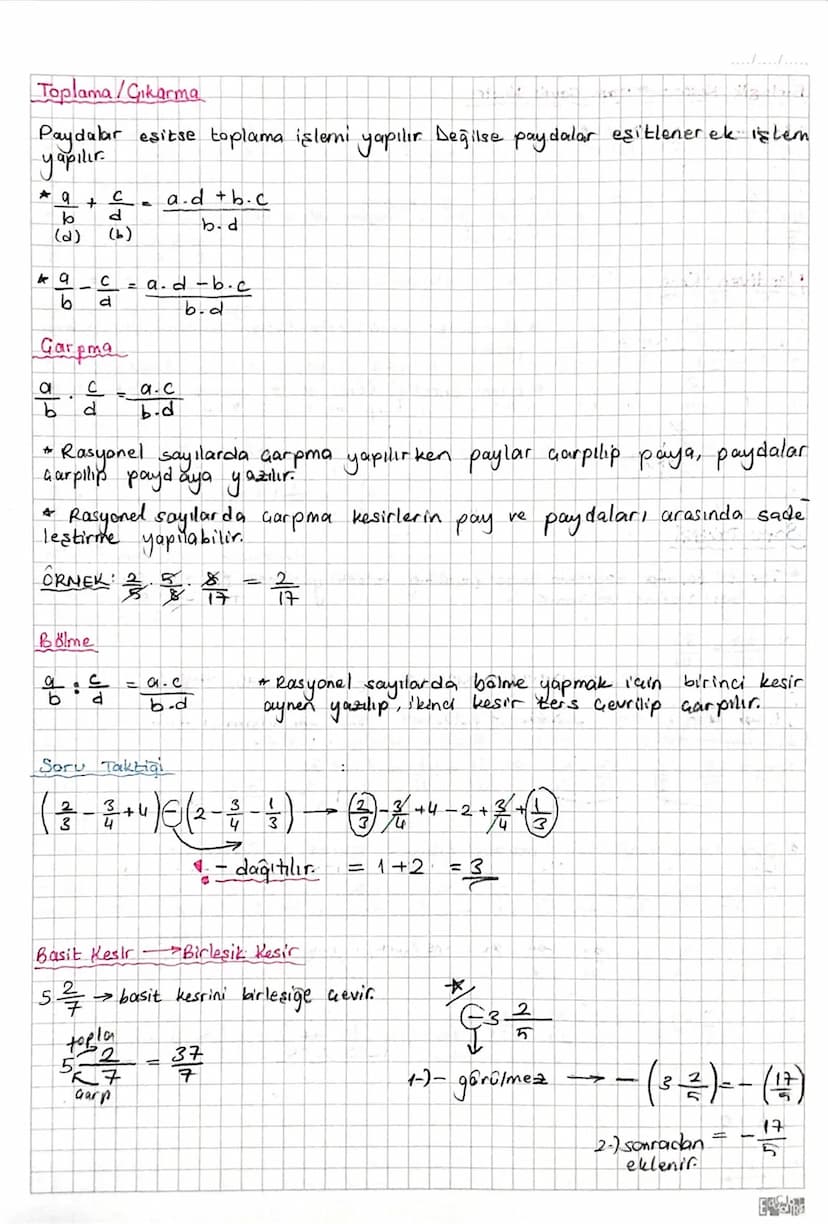 Toplama/Çıkarma
Paydalar eşitse toplama işlemi yapılır Değilse paydalar eşitlenerek işlem
yapılır.
* a/b + c/d = a.d + b.c / b.d
(d) (b)
* a/b - c/d = a.d - b.c / b.d
Çarpma
a/b . c/d = a.c / b.d
* Rasyonel sayılarda çarpma yapılırken paylar çarpılıp paya, paydalar
çarpılıp paydaya yazılır.
* Rasyonel sayılarda çarpma kesirlerin pay ve paydaları arasında sade
leştirme yapılabilir.
ÖRNEK: 2/5 . 5/8 . 8/17 = 2/17
Bölme
a/b : c/d = a.c / b.d
* Rasyonel sayılarda bölme yapmak için birinci kesir
aynen yazılıp, ikinci kesir ters çevrilip çarpılır.
Soru Taktiği :
(2/3 - 3/4 + 4) - (2 - 3/4 - 1/3) → 2/3 - 3/4 + 4 - 2 + 3/4 + 1/3
! - dağıtılır. = 1+2 = 3
Basit Kesir → Birleşik Kesir
5 2/7 → basit kesrini birleşiğe çevir.
topla
5 2/7 = 37/7
çarp
* -3 2/5
1-) - görülmez → - (3 2/5) = - (17/5)
2-) sonradan = - 17/5
eklenir.